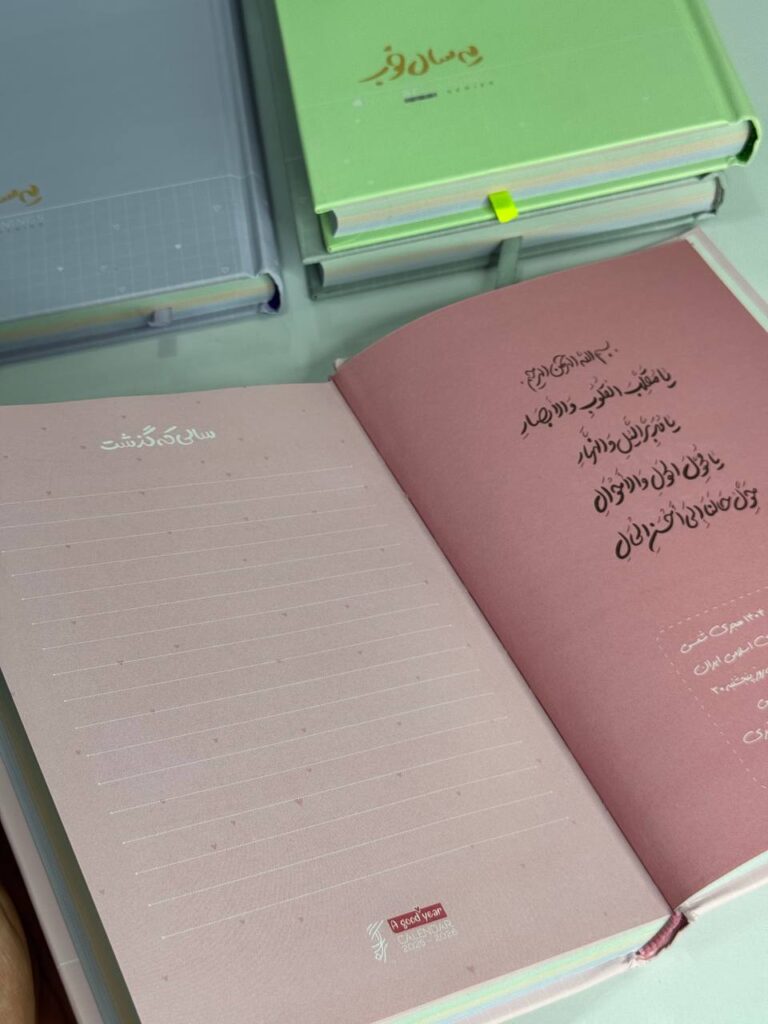 یه سال خوب
SERIES
سالی که گذشت
A good year
CALENDAR
2025 - 2026
بسم الله الرحمن الرحیم
یا مُقَلِّبَ القُلُوبِ وَالاَبصارِ
یا مُدَبِّرَ اللَّیلِ وَالنَّهارِ
یا مُحَوِّلَ الحَولِ وَالاَحوالِ
حَوِّل حالَنا اِلی اَحسَنِ الحالِ
۱۴۰۴ هجری شمسی
اسلامی ایران
روز پنجشنبه ۳۰